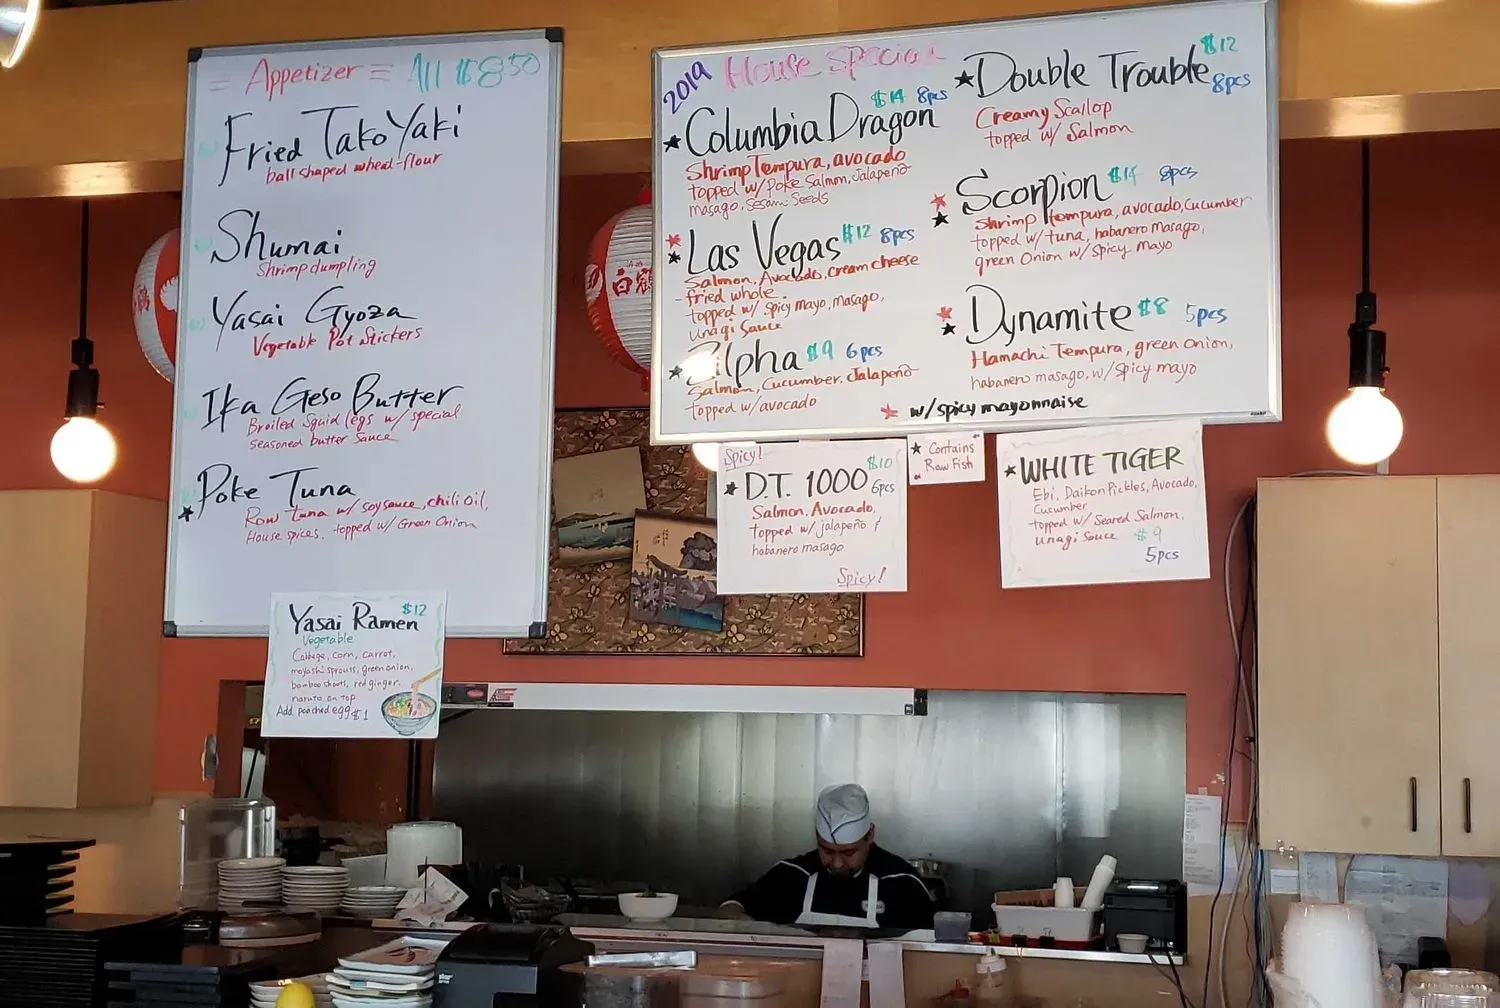 = Appetizer = All $8.50
Fried TakoYaki
ball shaped wheat-flour
Shumai
Shrimp dumpling
Yasai Gyoza
Vegetable Pot Stickers
Ika Geso Butter
Broiled Squid legs w/ special
seasoned butter sauce
★ Poke Tuna
Raw tuna w/ soysauce, chili oil,
House spices, topped w/ Green Onion
Yasai Ramen $12
Vegetable
Cabbage, corn, carrot,
moyashi sprouts, green onion,
bamboo shoots, red ginger,
naruto on top
Add poached egg $1
2019 House Special
★ Columbia Dragon $14 8pcs
Shrimp Tempura, avocado
topped w/ Poke Salmon, Jalapeño
masago, Sesame Seeds
★ ★ Las Vegas $12 8pcs
Salmon, Avocado, cream cheese
- fried whole
topped w/ spicy mayo, masago,
unagi sauce
★ Alpha $9 6pcs
Salmon, Cucumber, Jalapeño
topped w/ avocado
★ Double Trouble $12 8pcs
Creamy Scallop
topped w/ Salmon
★ ★ Scorpion $14 8pcs
Shrimp tempura, avocado, cucumber
topped w/ tuna, habanero masago,
green onion w/ spicy mayo
★ ★ Dynamite $8 5pcs
Hamachi Tempura, green onion,
habanero masago, w/ spicy mayo
★ w/ spicy mayonnaise
Spicy!
★ D.T. 1000 $10 6pcs
Salmon, Avocado,
topped w/ jalapeño &
habanero masago
Spicy!
★ Contains
Raw Fish
★ WHITE TIGER
Ebi, Daikon Pickles, Avocado,
Cucumber
topped w/ Seared Salmon,
unagi sauce $9
5pcs
白鶴